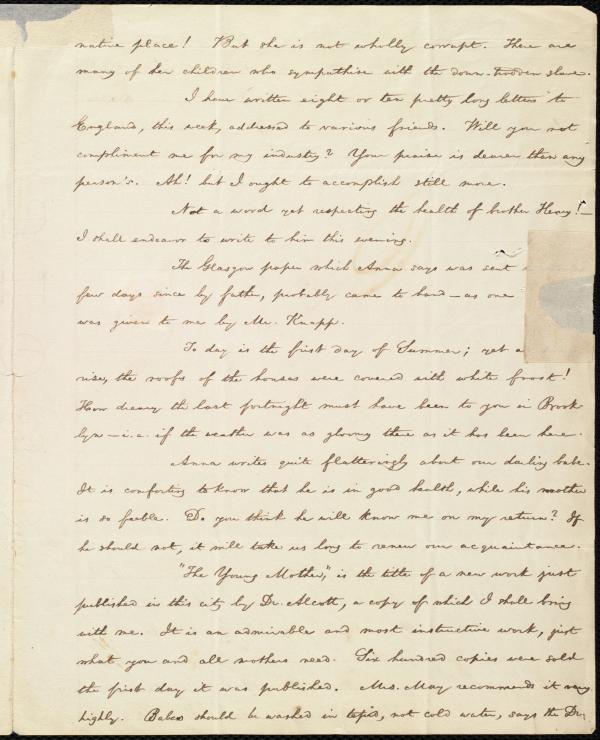 native place! But she is not wholly corrupt. There are
many of her children who sympathise with the down-trodden slave.
I have written eight or ten pretty long letters to
England, this week, addressed to various friends. Will you not
compliment me for my industry? Your praise is dearer than any
person's. Ah! but I ought to accomplish still more.
Not a word yet respecting the health of brother Henry!—
I shall endeavor to write to him this evening.
The Glasgow paper which Anna says was sent
few days since by father, probably came to hand—as one
was given to me by Mr. Knapp.
To day is the first day of Summer; yet a
rise, the roofs of the houses were covered with white frost!
How dreary the last fortnight must have been to you in Brook
lyn—i.e. if the weather was as gloomy there as it has been here.
Anna writes quite flatteringly about our darling babe.
It is comforting to know that he is in good health, while his mother
is so feeble. Do you think he will know me on my return? If
he should not, it will take us long to renew our acquaintance.
"The Young Mother," is the title of a new work just
published in this city by Dr. Alcott, a copy of which I shall bring
with me. It is an admirable and most instructive work, just
what you and all mothers need. Six hundred copies were sold
the first day it was published. Mrs. May recommends it very
highly. Babes should be washed in tepid, not cold water, says the Dr.